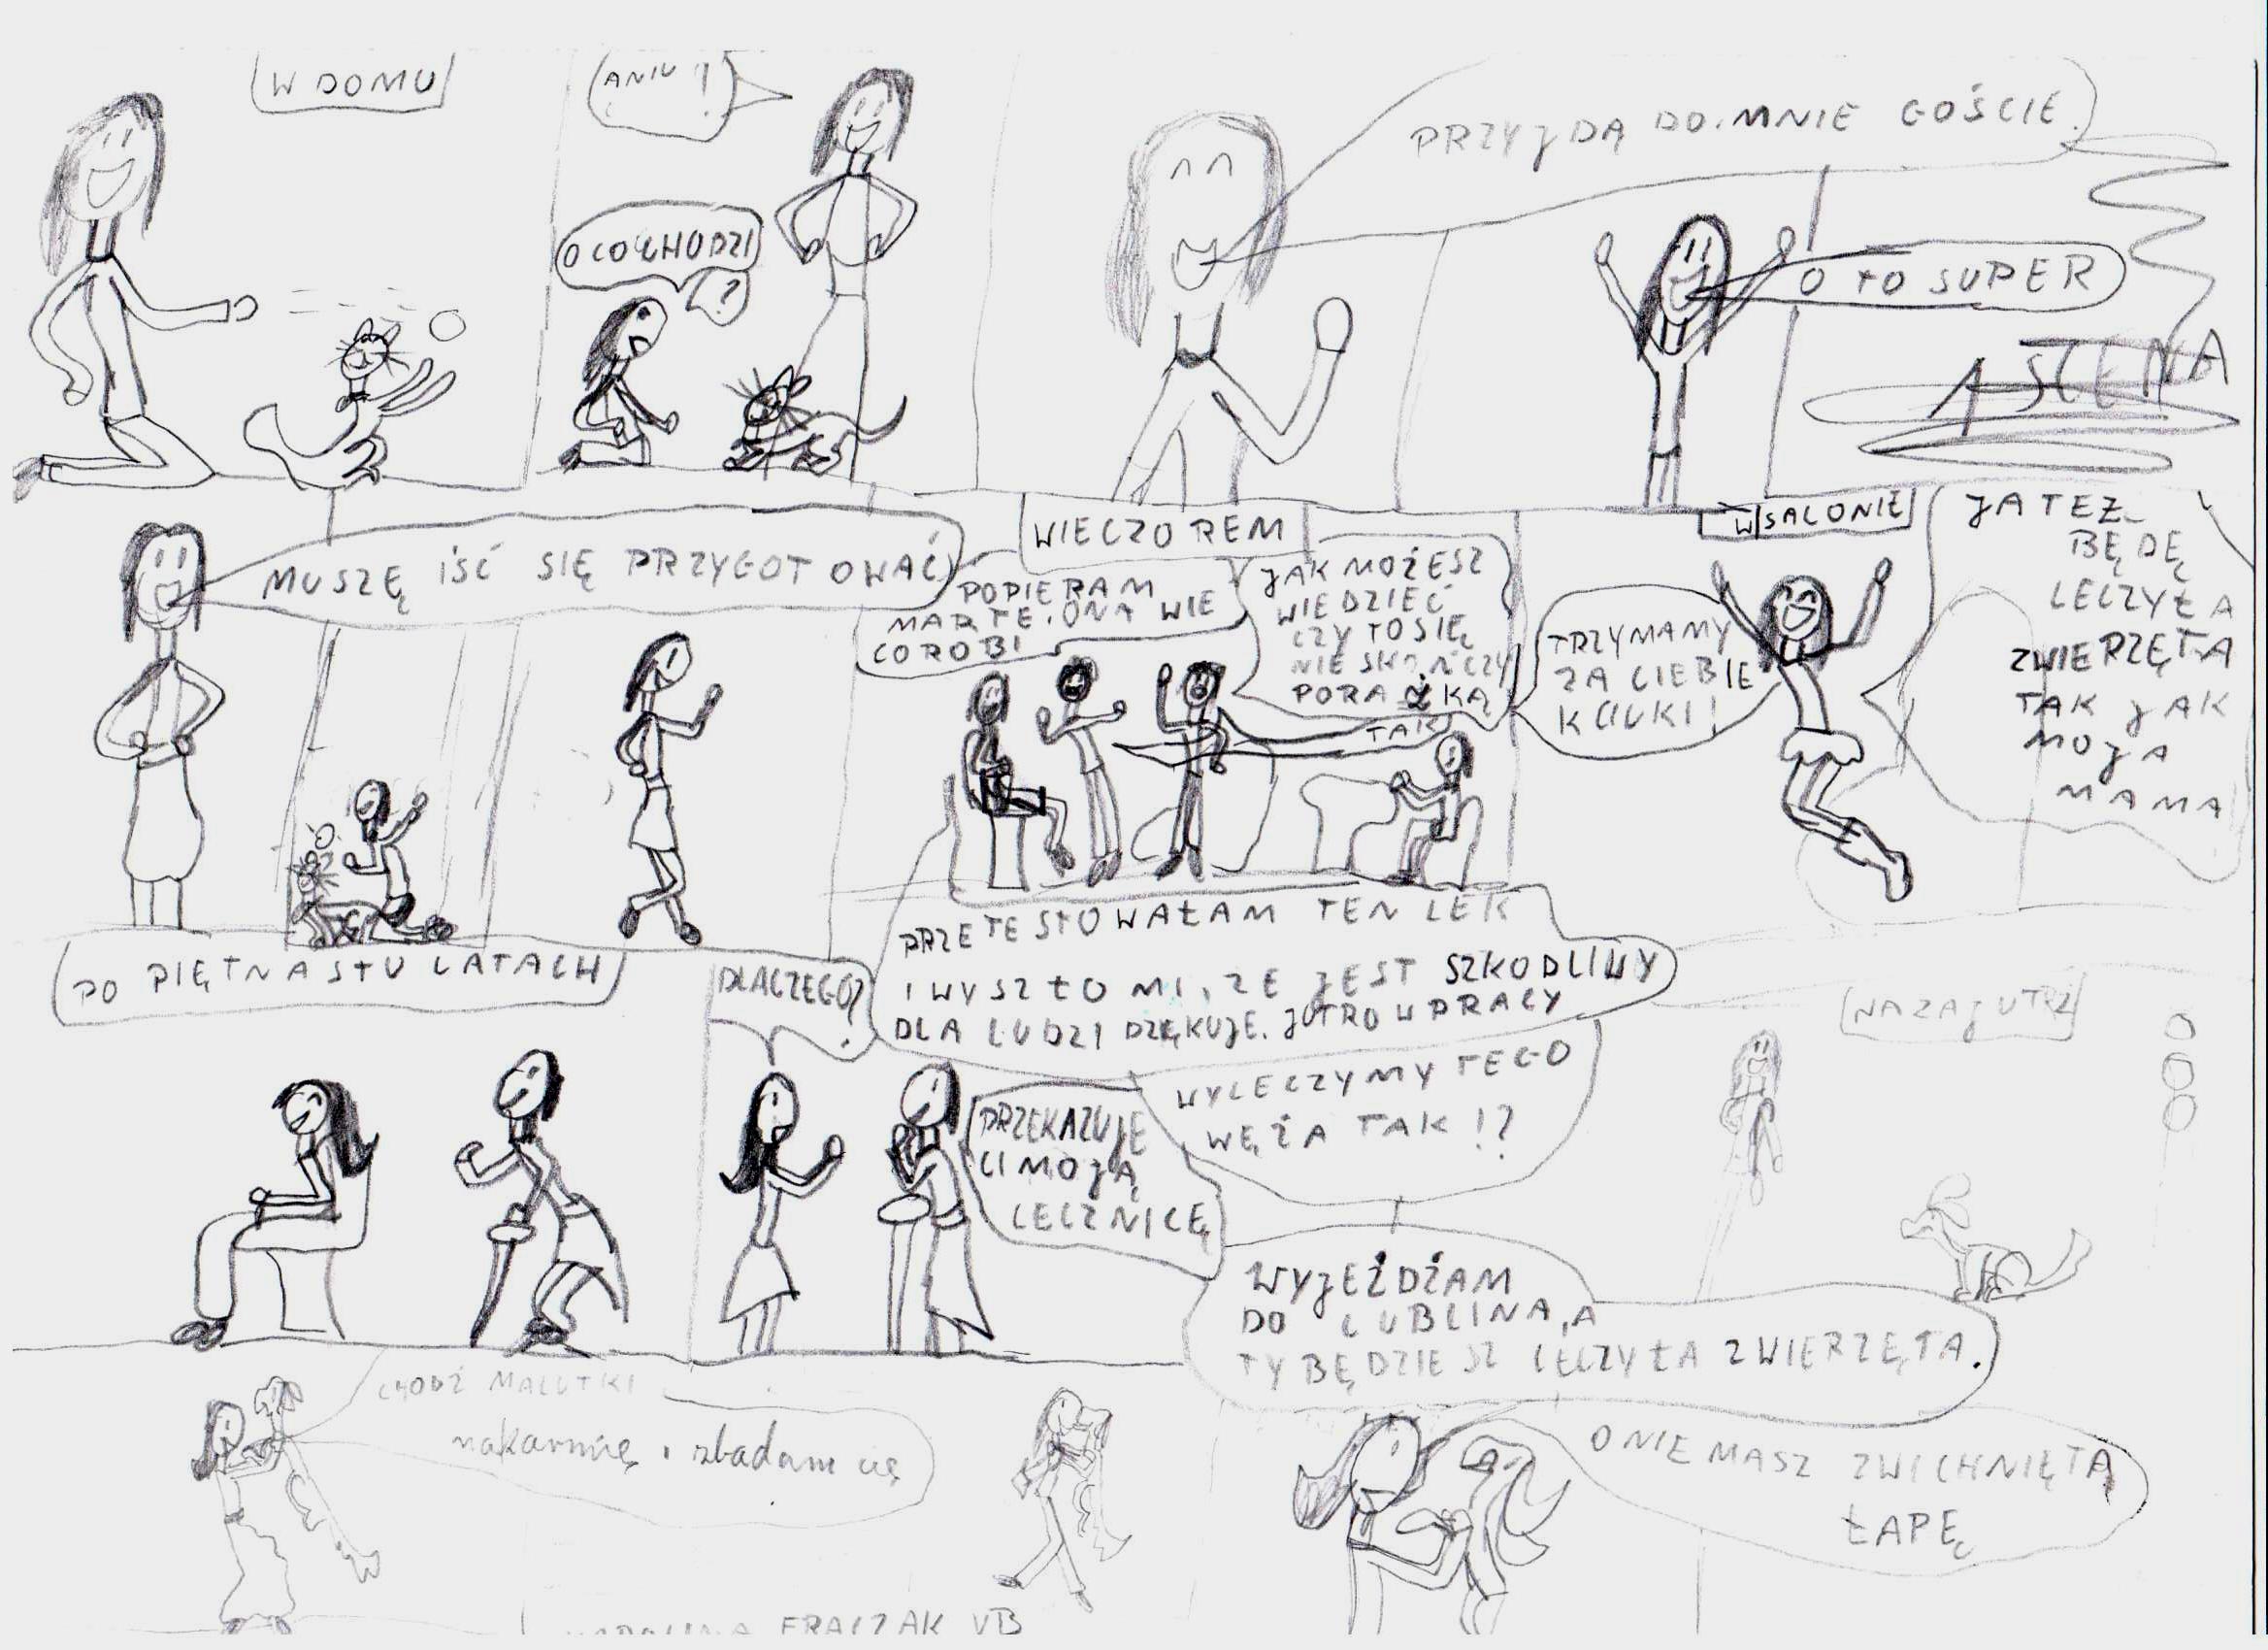 W DOMU
ANIU!
O CO CHODZI
?
PRZYJDĄ DO MNIE GOŚCIE.
O TO SUPER
1 SCENA
MUSZĘ IŚĆ SIĘ PRZYGOTOWAĆ
WIECZOREM
POPIERAM
MARTE. ONA WIE
CO ROBI
JAK MOŻESZ
WIEDZIEĆ
CZY TO SIĘ
NIE SKOŃCZY
PORAŻKĄ
TAK
W SALONIE
TRZYMAMY
ZA CIEBIE
KCIUKI!
JA TEŻ
BĘDĘ
LECZYŁA
ZWIERZĘTA
TAK JAK
MOJA
MAMA
PRZETESTOWAŁAM TEN LEK
I WYSZŁO MI, ZE JEST SZKODLIWY
DLA LUDZI DZĘKUJE. JUTRO W PRACY
WYLECZYMY TEGO
WĘŻA TAK!?
PO PIĘTNASTU LATACH
DLACZEGO?
PRZEKAZUJĘ
CI MOJĄ
LECZNICĘ
WYJEŻDŻAM
DO LUBLINA, A
TY BĘDZIESZ LECZYŁA ZWIERZĘTA.
NAZAJUTRZ
CHODŹ MALUTKI
nakarmię i zbadam cię
O NIE MASZ ZWICHNIĘTĄ
ŁAPĘ
FRĄCZAK VB